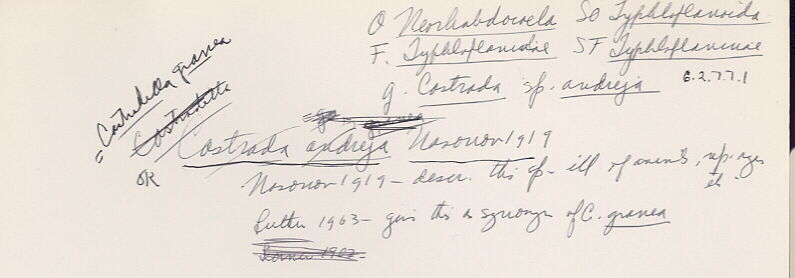 O Neorhabdocoela SO Typhloplanoida
F. Typhloplanidae SF Typhloplaninae
g. Castrada sp. andreja 6.2.7.7.1
= Castradella granea
Castradella
OK
Castrada andreja Nasonov 1919
Nasonov 1919 – descr. this sp – ill
Luther 1963 – gives this as synonym of C. granea